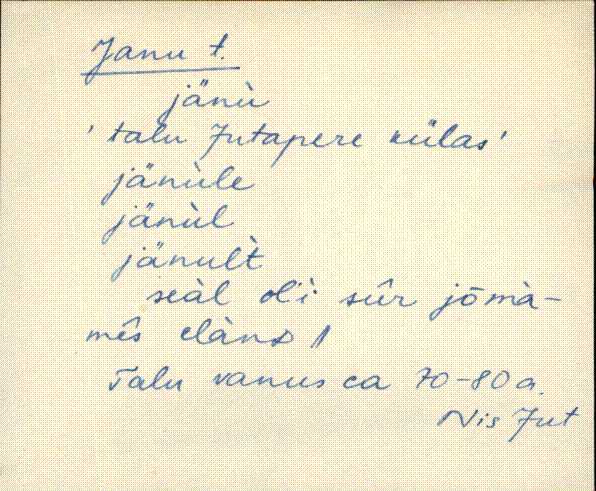 Janu t.
jänù
' talu Jutapere külas'
jänùle
jänùl
jänùlt
seàl ol'i sûr jōmà-
mês elànd //
Talu vanus ca 70-80 a.
Nis Jut